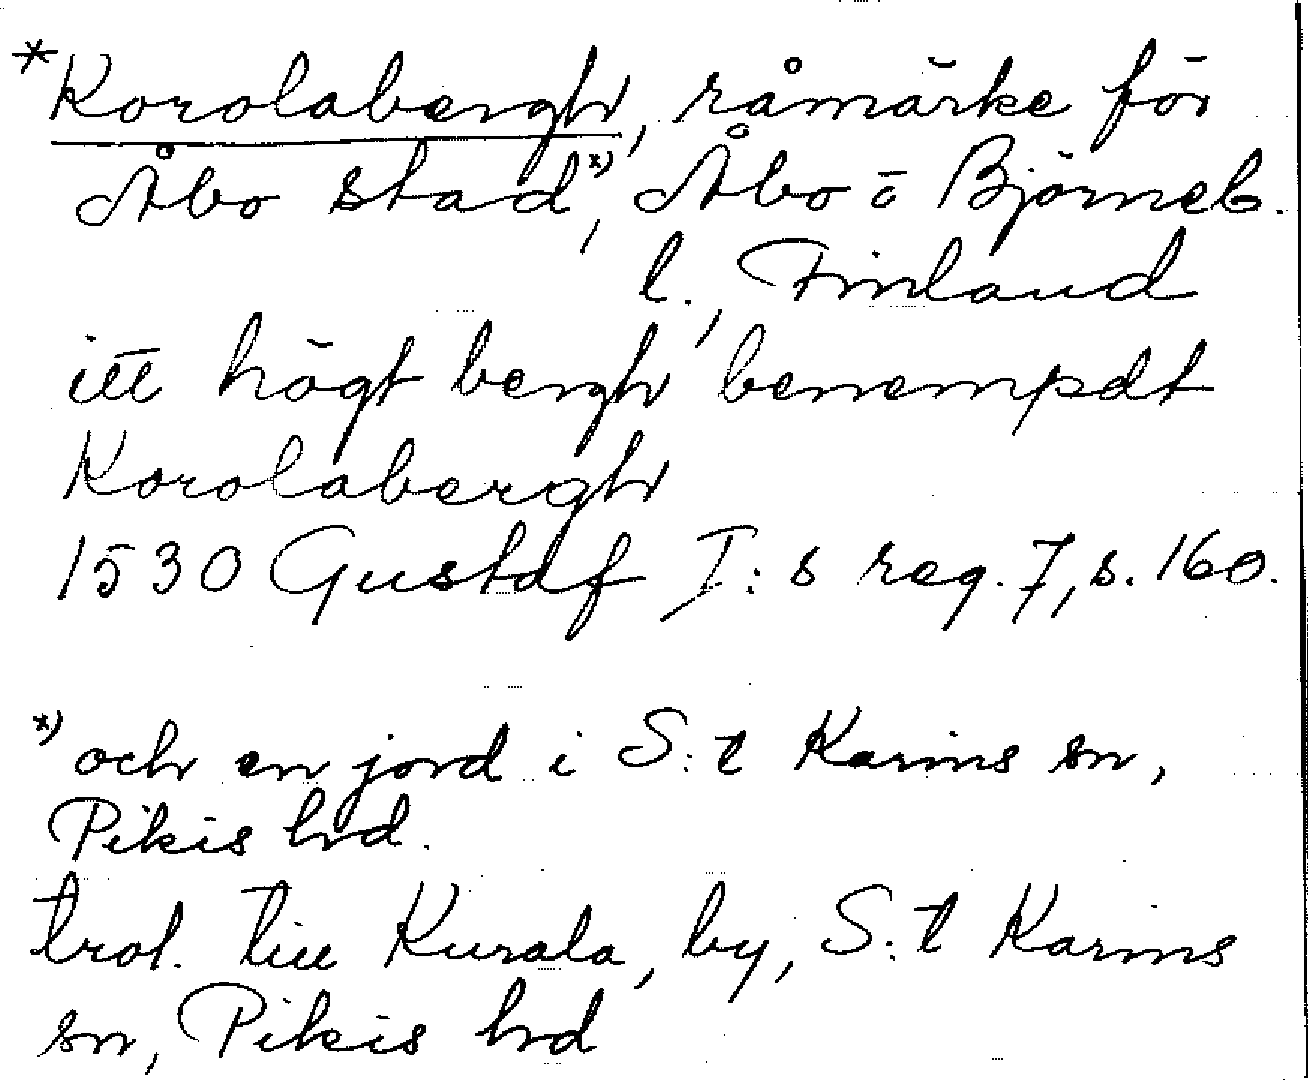 *Korolabergh, råmärke för
Åbo stad,ˣ⁾ Åbo o Björneb.
l., Finland
itt högt bergh benempdt
Korolabergh
1530 Gustaf I:s reg. 7, s. 160.
ˣ⁾ och en jord i S:t Karins sn,
Pikis hrd.
trol. till Kurala, by, S:t Karins
sn, Pikis hrd